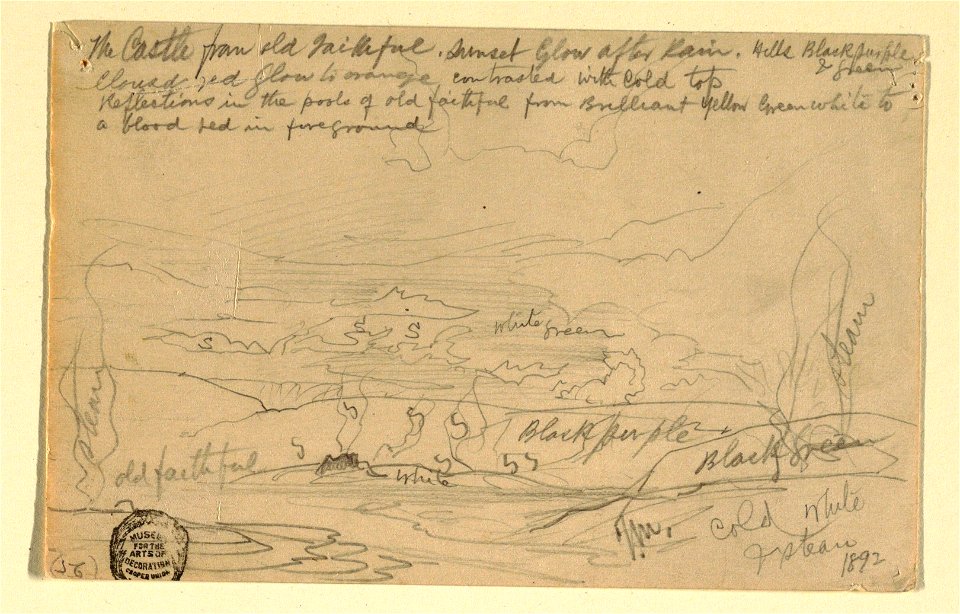 The Castle from old Faithful. Sunset Glow after Rain. Hills Black purple
& green
Clouds red Glow to orange contrasted with Cold top
Reflections in the pools of old faithful from Brilliant Yellow Green white to
a blood red in foreground
white green
S S S
steam
steam
S S S S S S S
Black purple
Black green
old faithful
white
Cold white
steam
1892
MUSEUM
FOR THE
ARTS OF
DECORATION
COOPER UNION
(56)